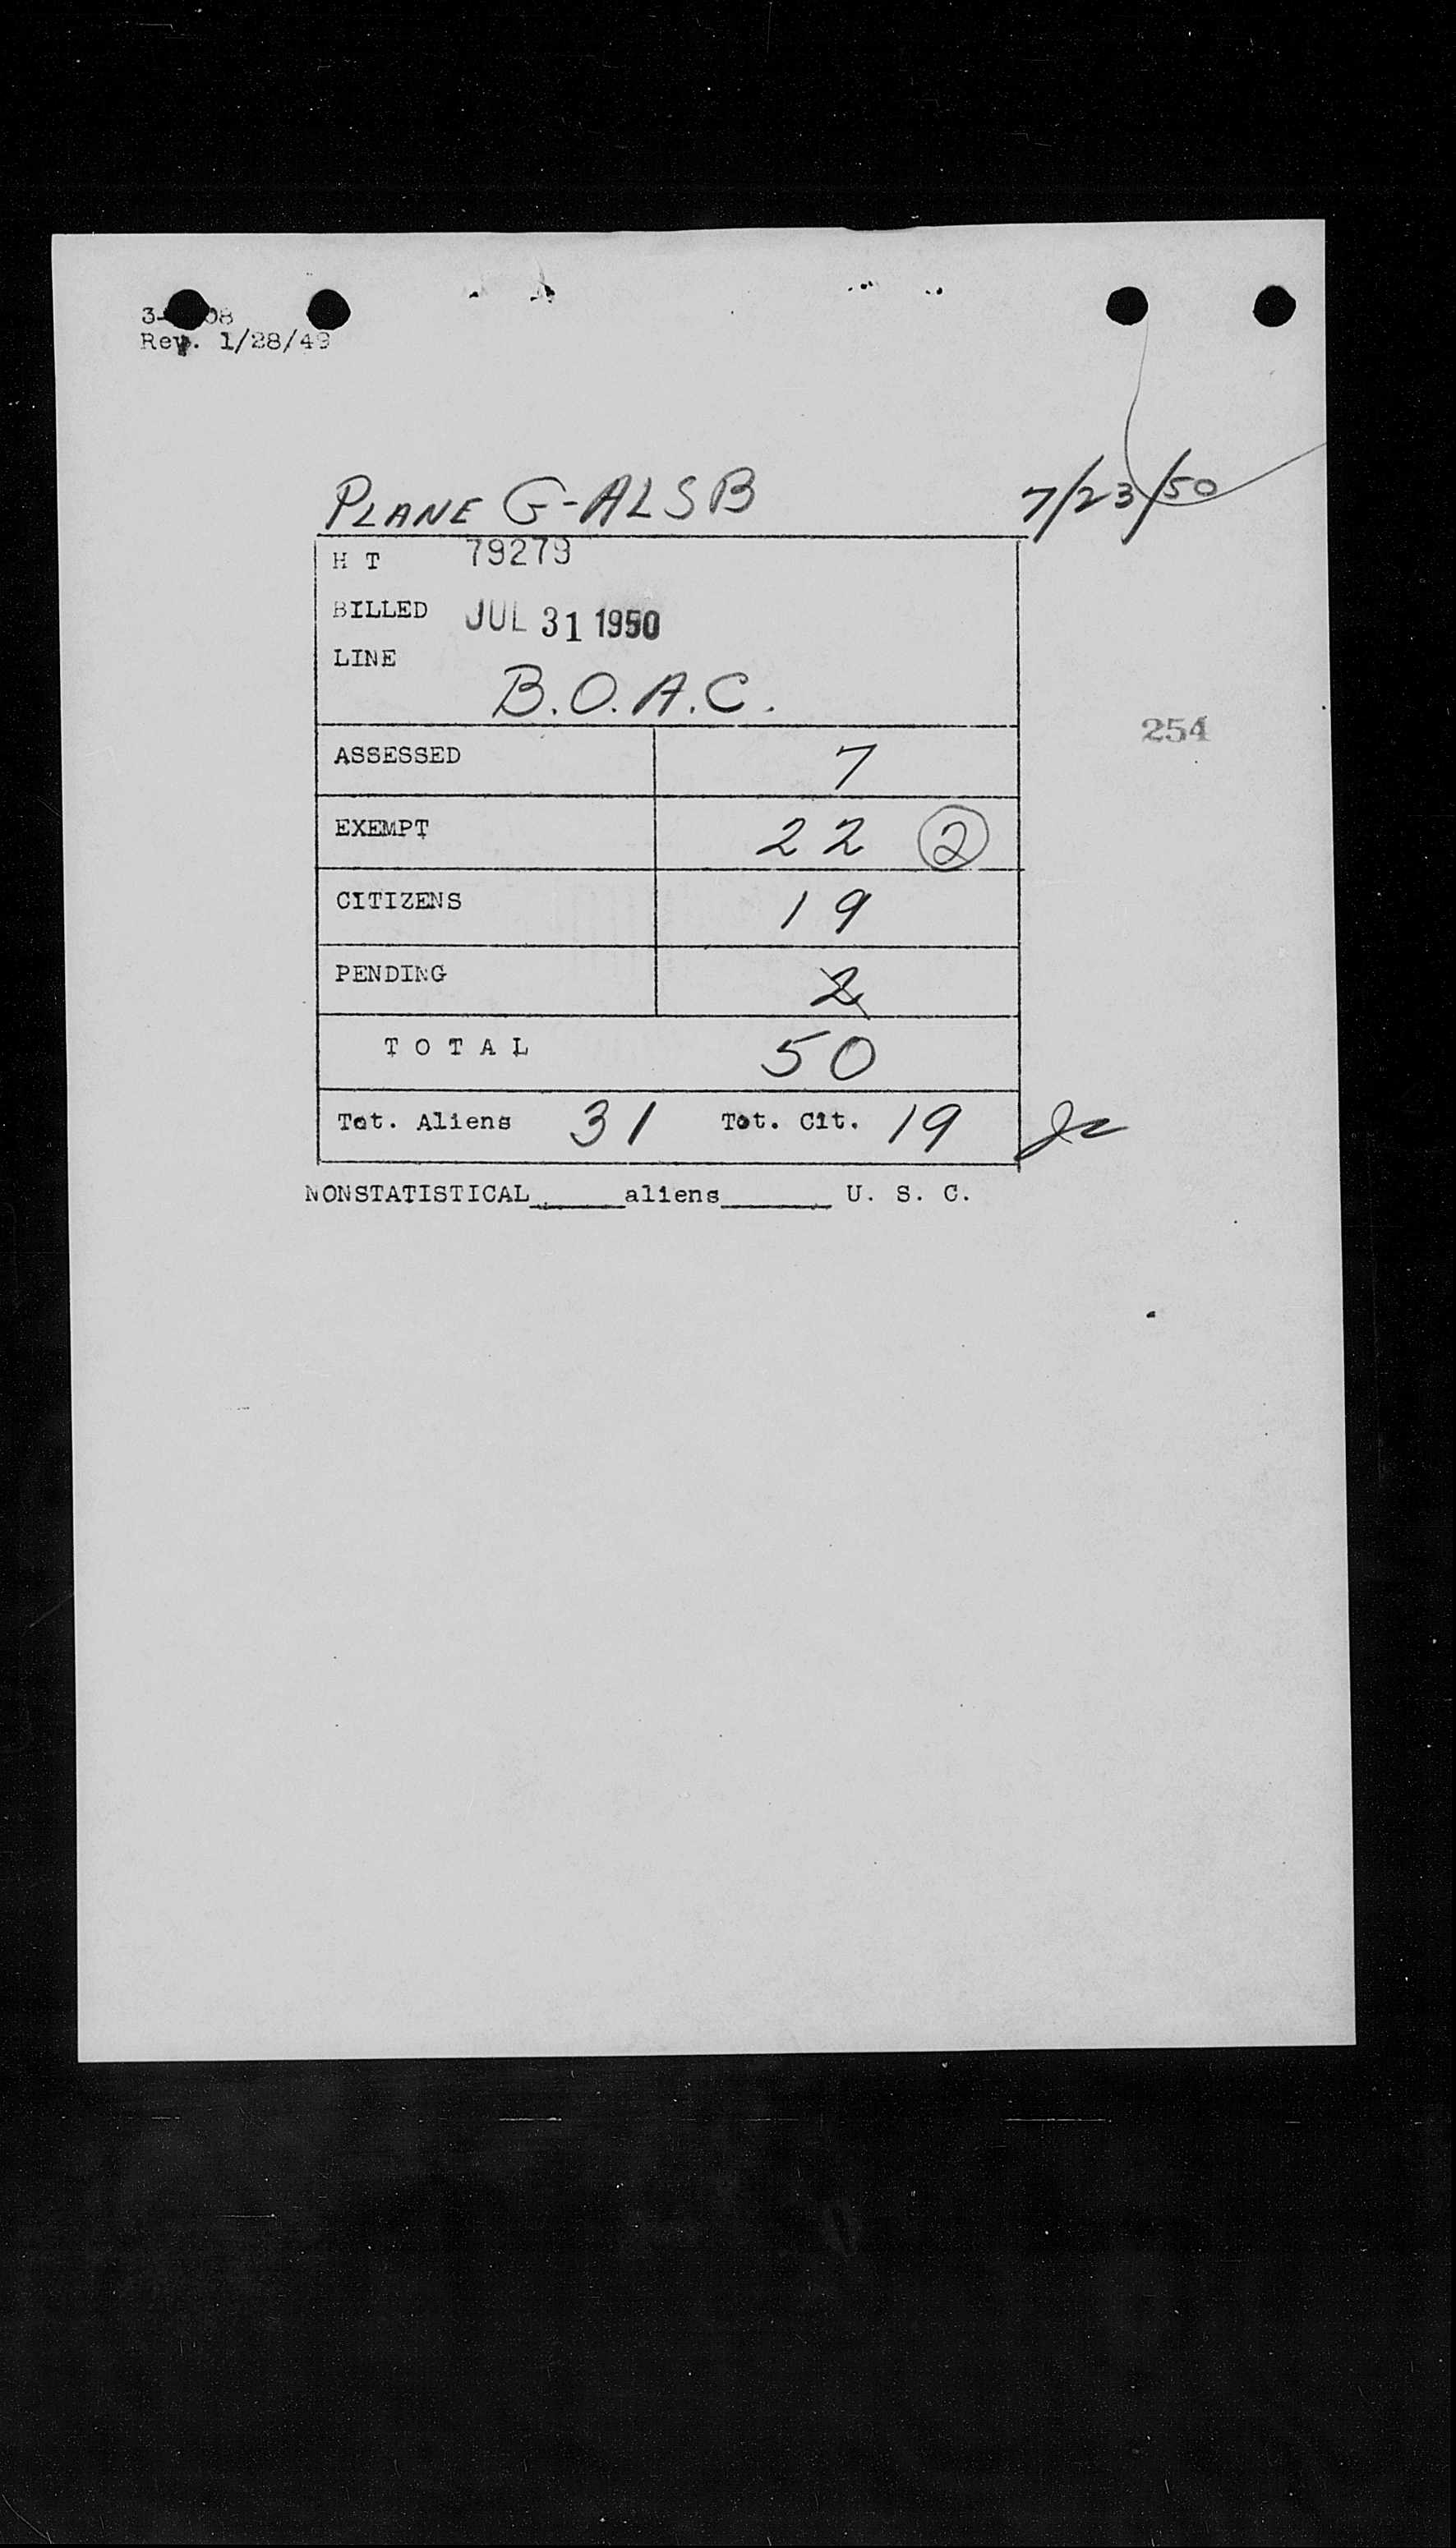 Rev. 1/28/49
PLANE G-ALSB 7/23/50
H T 79279
BILLED JUL 31 1950
LINE
B.O.A.C.
254
ASSESSED 7
EXEMPT 22 2
CITIZENS 19
PENDING 2
TOTAL 50
Tot. Aliens 31 Tot. Cit. 19
NONSTATISTICAL_____aliens______ U. S. C.